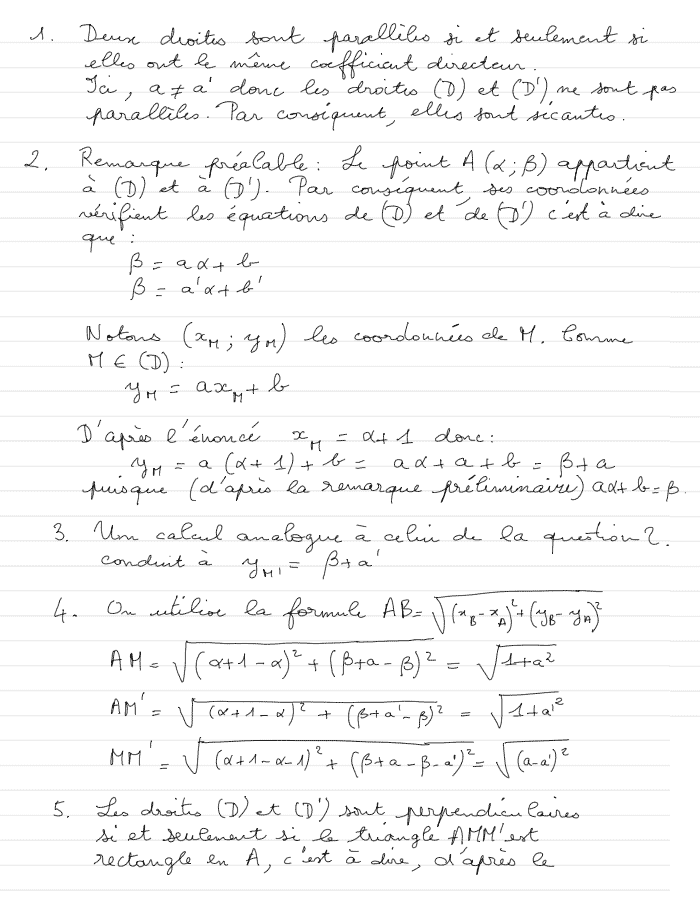 1. Deux droites sont parallèles si et seulement si
elles ont le même coefficient directeur.
Ici, a ≠ a' donc les droites (D) et (D') ne sont pas
parallèles. Par conséquent, elles sont sécantes.
2. Remarque préalable : Le point A (α ; β) appartient
à (D) et à (D'). Par conséquent, ses coordonnées
vérifient les équations de (D) et de (D') c'est à dire
que :
β = aα + b
β = a'α + b'
Notons (x_M ; y_M) les coordonnées de M. Comme
M ∈ (D) :
y_M = ax_M + b
D'après l'énoncé x_M = α + 1 donc :
y_M = a (α + 1) + b = aα + a + b = β + a
puisque (d'après la remarque préliminaire) aα + b = β.
3. Un calcul analogue à celui de la question 2.
conduit à y_M' = β + a'
4. On utilise la formule AB = √((x_B - x_A)² + (y_B - y_A)²)
AM = √((α + 1 - α)² + (β + a - β)²) = √(1 + a²)
AM' = √((α + 1 - α)² + (β + a' - β)²) = √(1 + a'²)
MM' = √((α + 1 - α - 1)² + (β + a - β - a')²) = √((a - a')²)
5. Les droites (D) et (D') sont perpendiculaires
si et seulement si le triangle AMM' est
rectangle en A, c'est à dire, d'après le